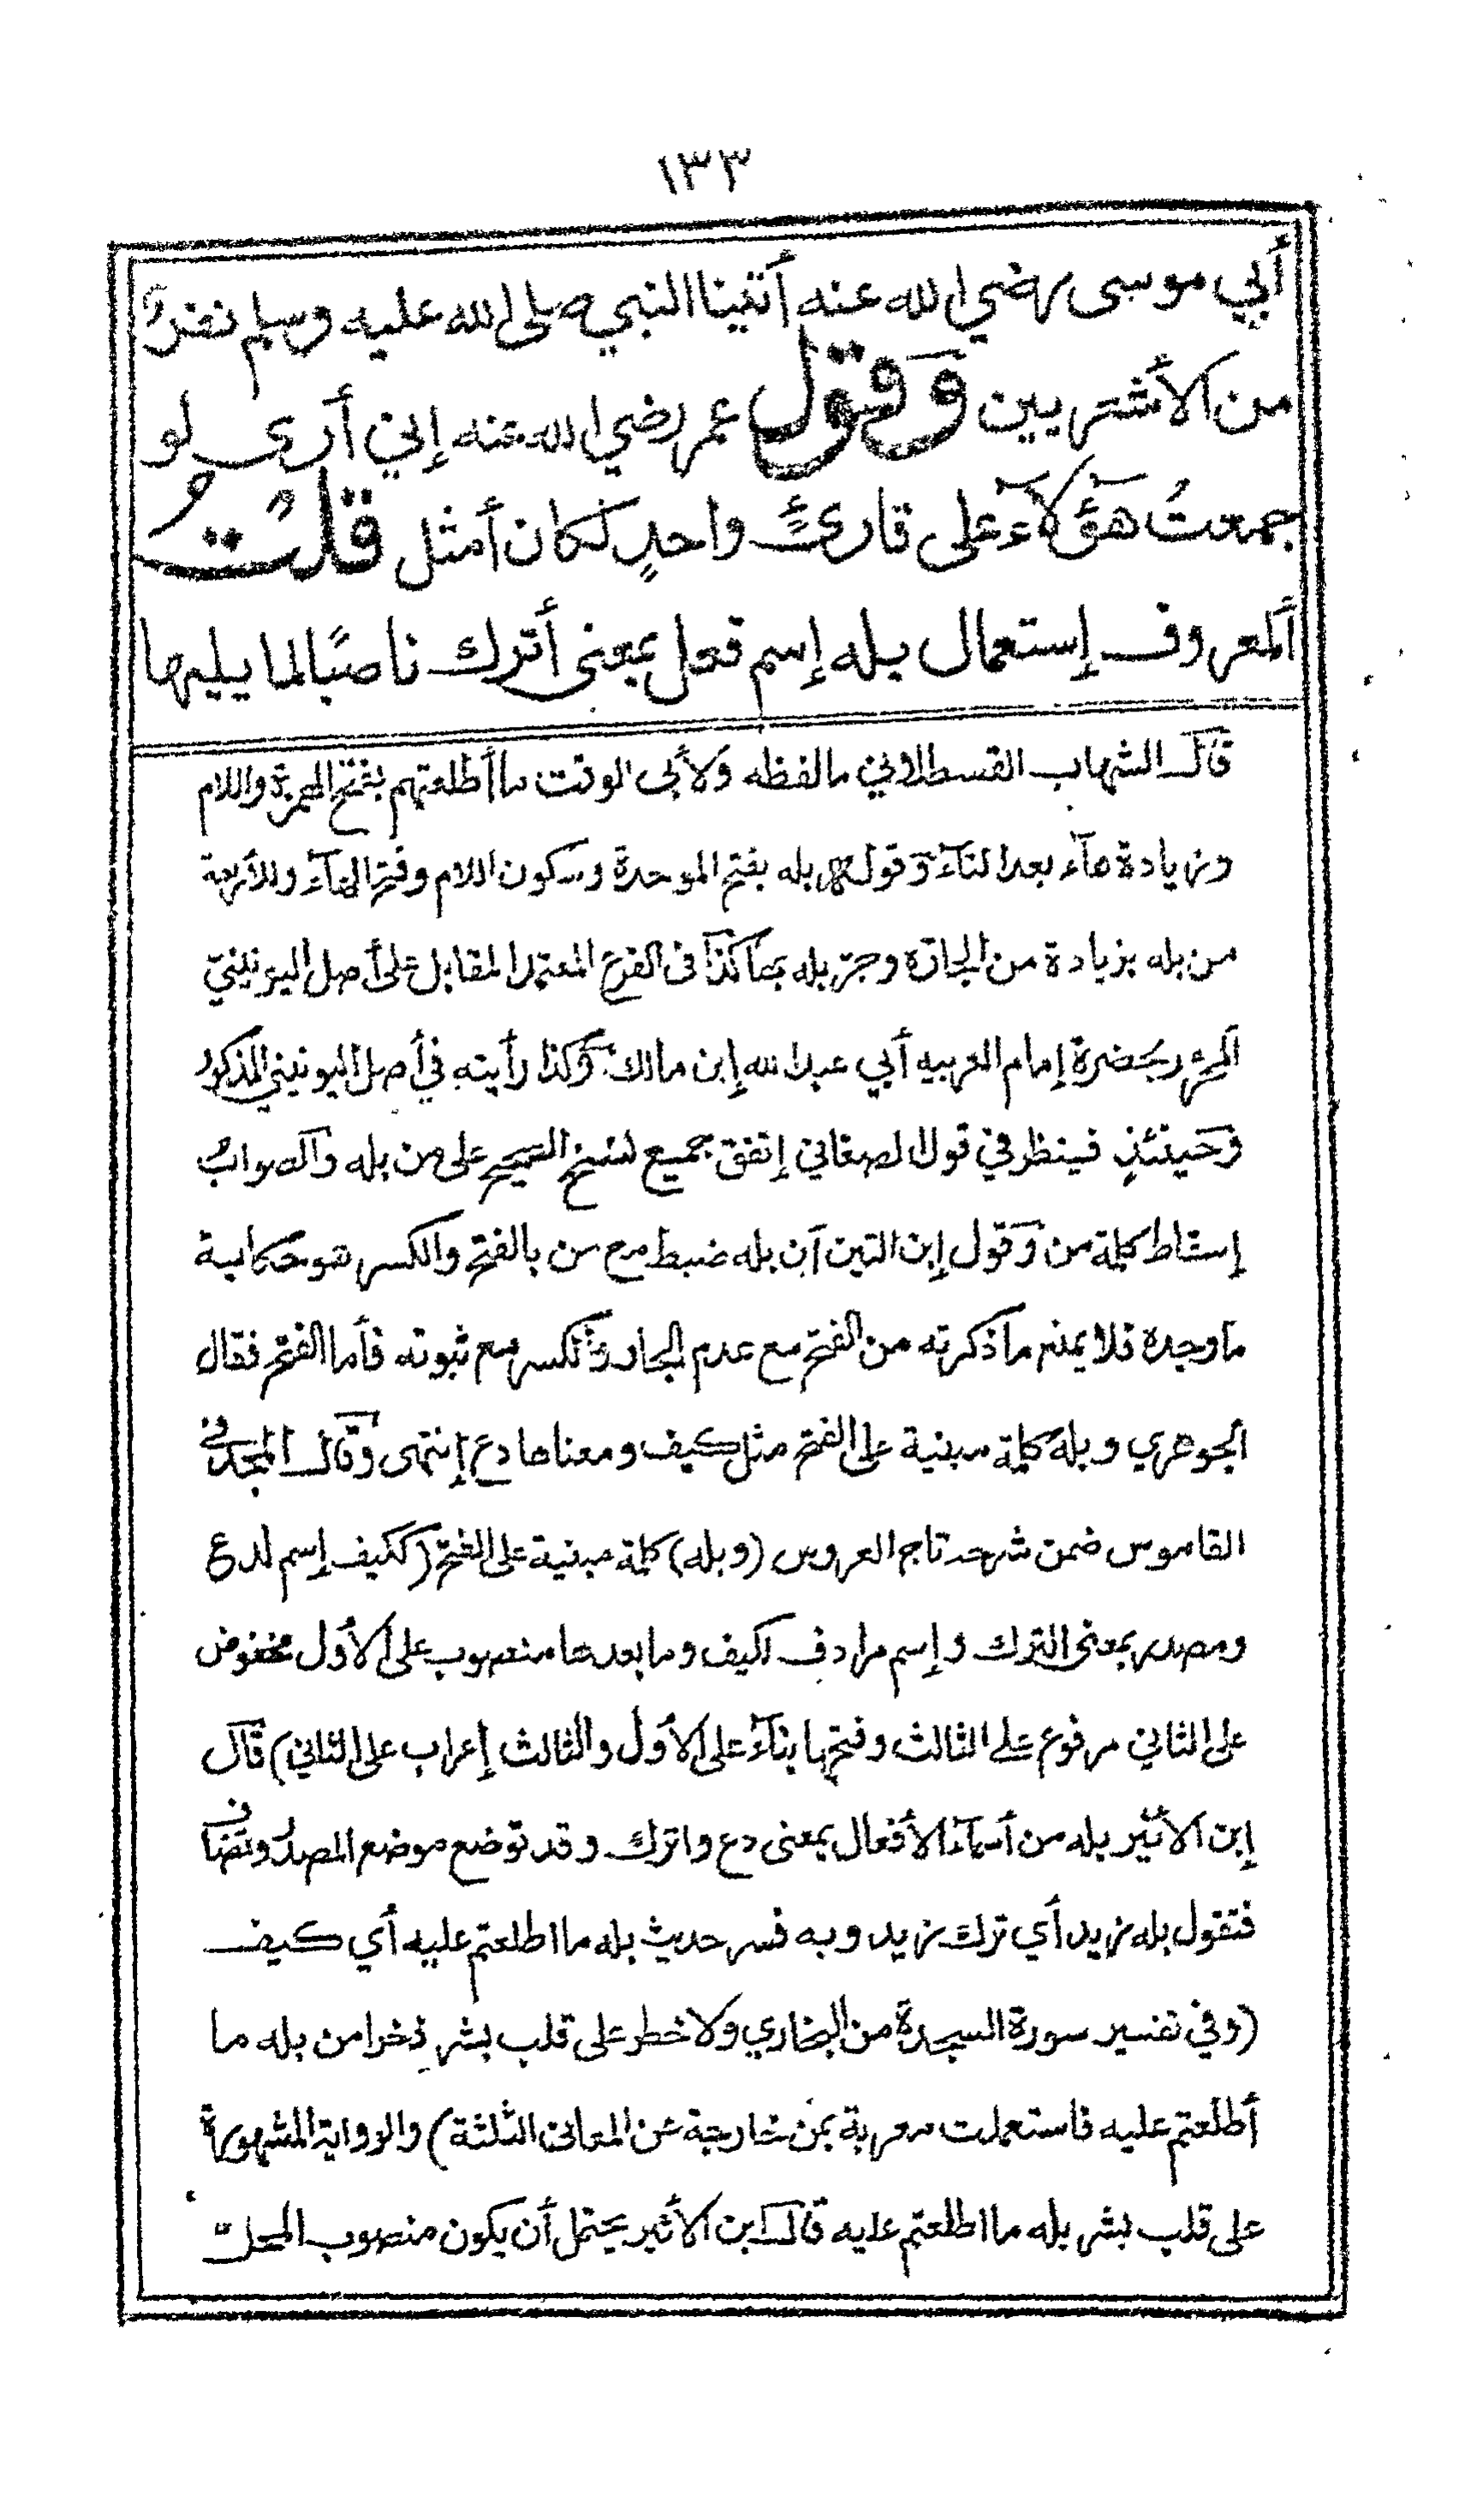 ١٣٣
أبي موسى رضي الله عنه أتينا النبي صلى الله عليه وسلم نفرٌ
من الأشعريين وَقول عمر رضي الله عنه إني أرى لو
جمعتُ هَؤلآء على قارئٍ واحدٍ لكان أمثل قلتُ
ألمعروف إستعمال بله إسم فعل بمعنى أترك ناصبًا لما يليها
قال الشهاب القسطلاني ما لفظه ولأبى الوقت ما أطلعتهم بفتح الهمزة واللام
وزيادة هآء بعد التآء وَقوله بله بفتح الموحدة وسكون اللام وفتح الهآء وللأربعة
من بله بزيادة من الجارّة وجرّ بله بها كذا فى الفرع المعتمد المقابل على أصل اليونينيّ
المحرّر بحضرة إمام العربيه أبي عبد الله إبن مالك وَكذا رأيته في أصل اليونيني المذكور
وَحينئذٍ فينظر في قول الصغاني إتفق جميع نسخ الصحيح على من بله والصوابُ
إسقاط كلمة من وَقول إبن التين أن بله ضبط مع من بالفتح والكسر هو حكاية
ما وجده فلا يمنع ما ذكرته من الفتح مع عدم الجار والكسر مع ثبوته فأما الفتح فقال
الجوهري وبله كلمة مبنية على الفتح مثل كيف ومعناها دع إنتهى وقال المجد في
القاموس ضمن شرحه تاج العروس (وبله) كلمة مبنية على الفتح (ككيف إسم لدع
ومصدر بمعنى الترك وإسم مرادف لكيف وما بعدها منصوب على الأول مخفوض
على الثاني مرفوع على الثالث وفتحها بناءً على الأول والثالث إعراب على الثاني) قال
إبن الأثير بله من أسمآء الأفعال بمعنى دع واترك وقد توضع موضع المصدر وتضاف
فتقول بله زيد أي ترك زيد وبه فسر حديث بله ما اطلعتم عليه أي كيف
(وفي تفسير سورة السجدة من البخاري ولا خطر على قلب بشر ذخرا من بله ما
أطلعتم عليه فاستعملت معربة بمن خارجة عن المعاني الثلثة) والرواية المشهورة
على قلب بشر بله ما اطلعتم عليه قال ابن الأثير يحتمل أن يكون منصوب المحل